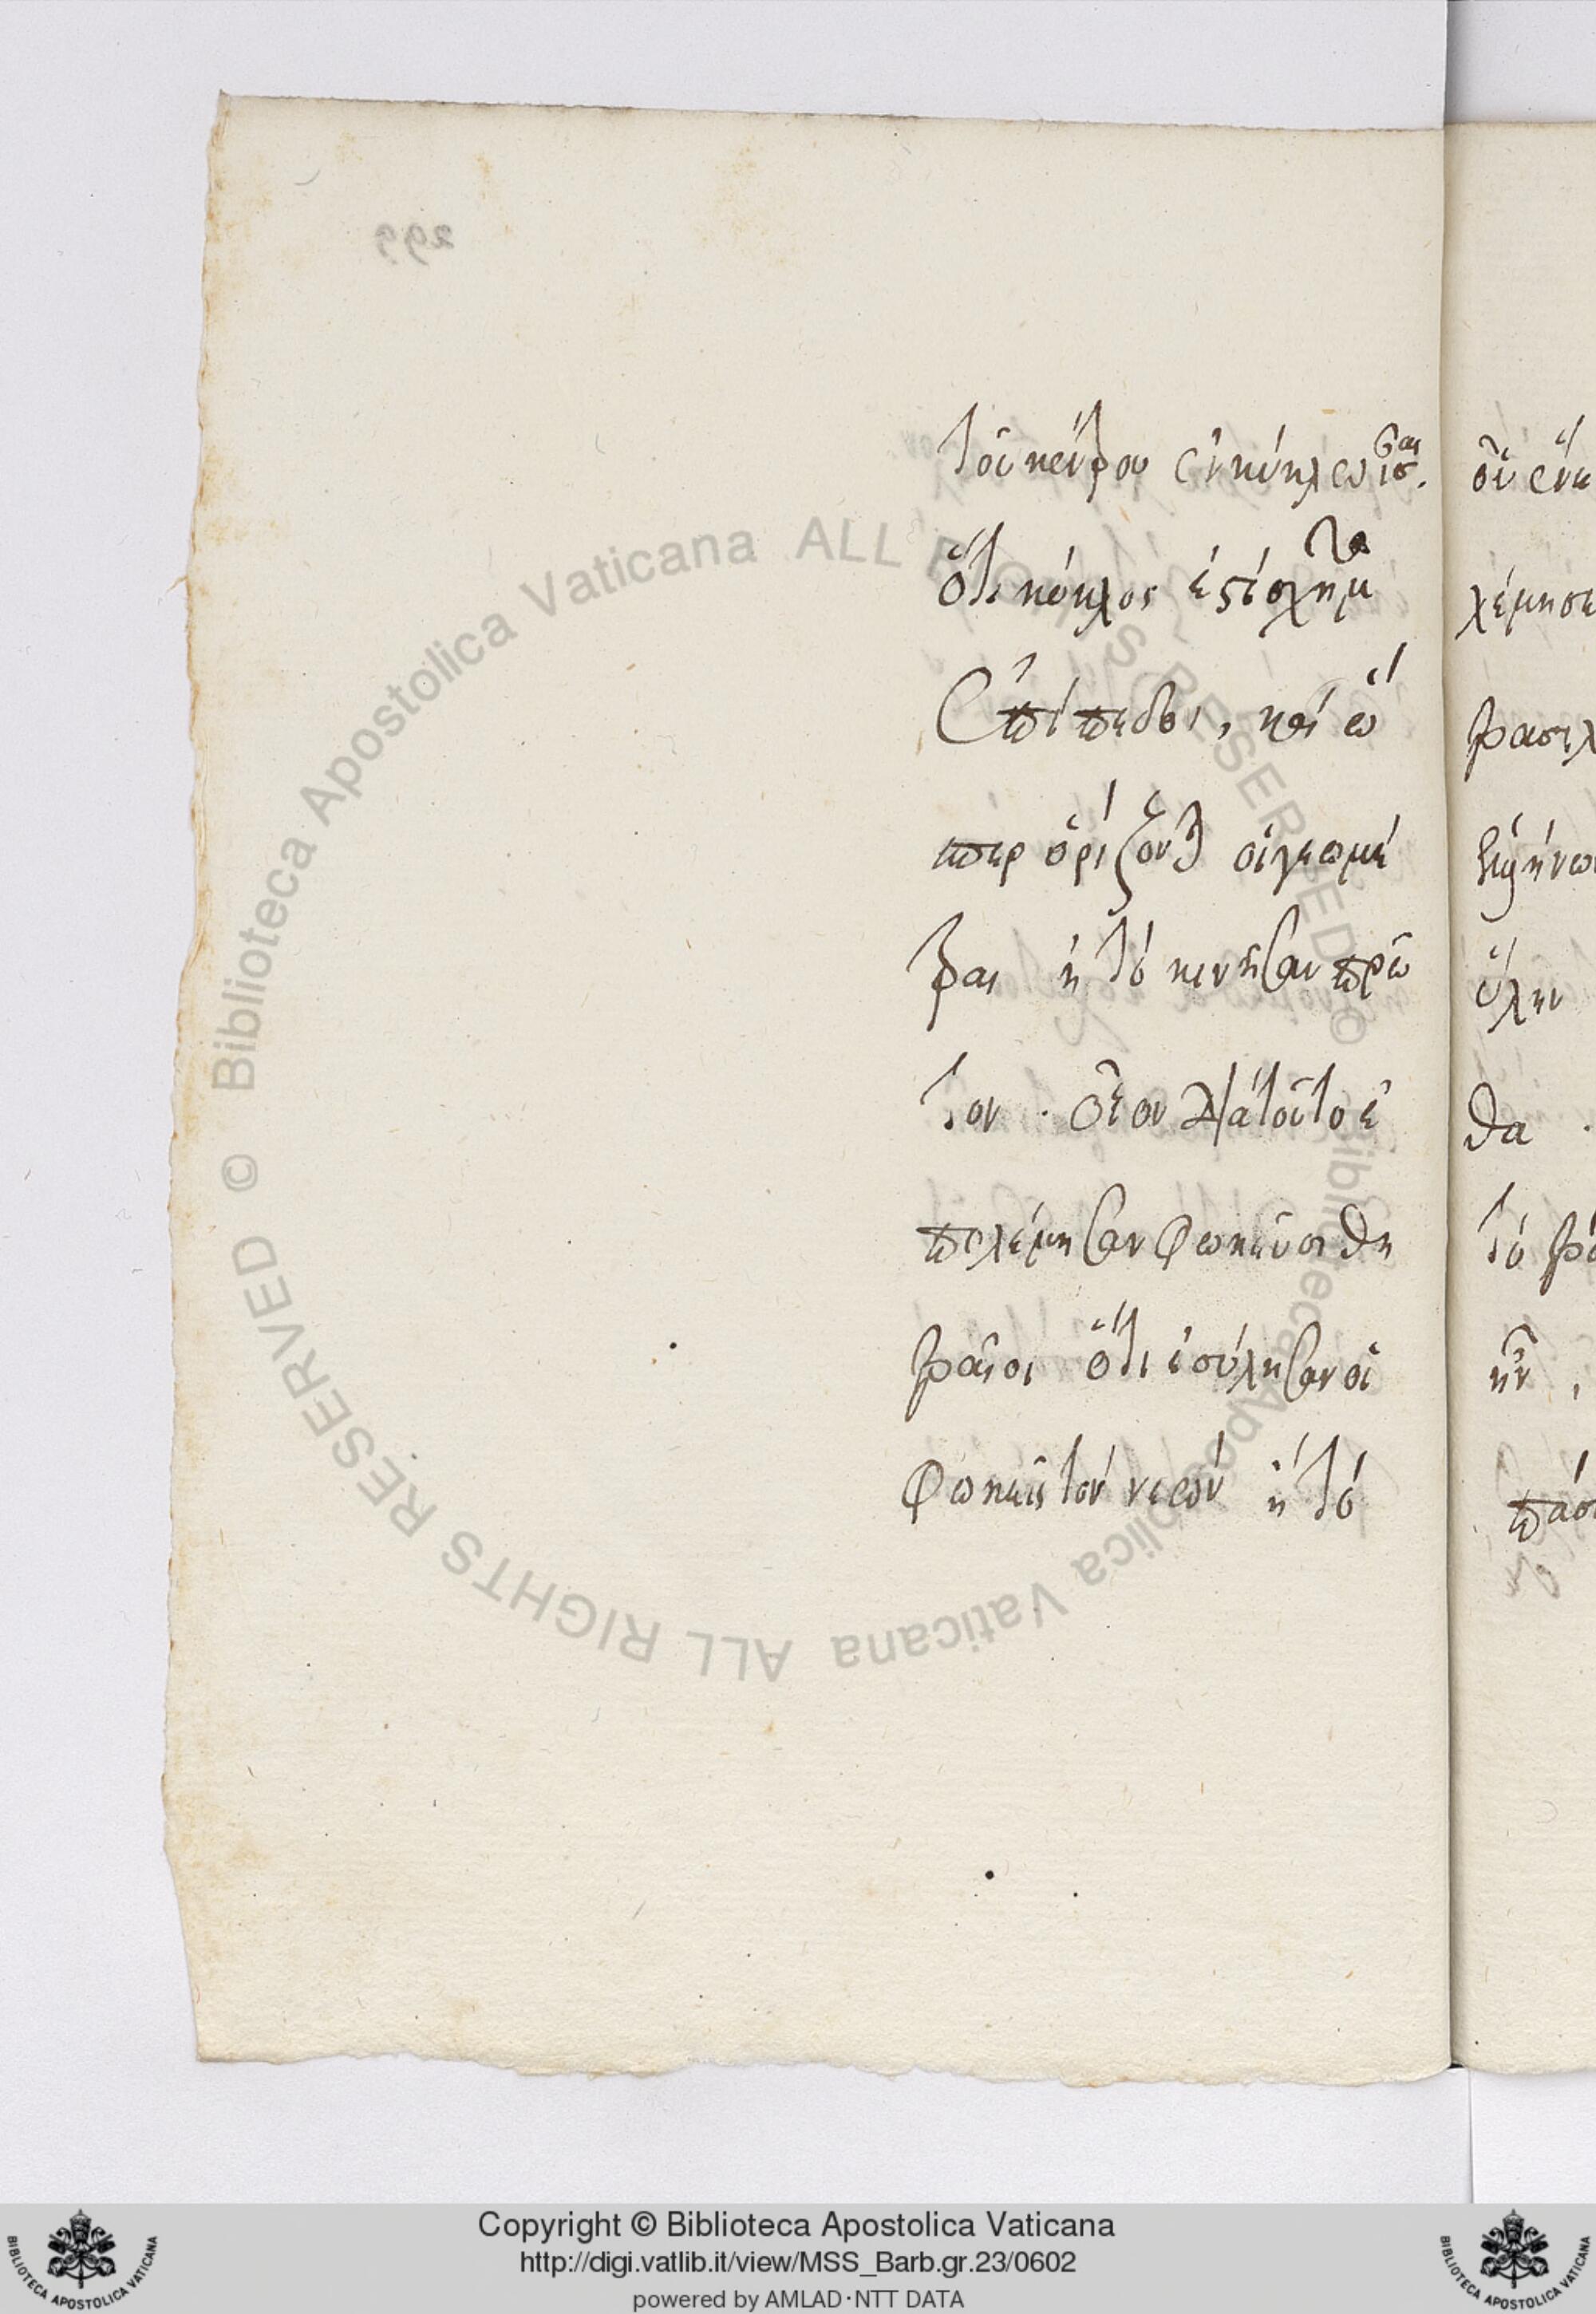 299
τοῦ κέντρου ἐν κύκλῳ ἴσαι.
ὅτι κύκλος ἐστὶ σχῆμα
ἐπίπεδοι, καὶ ὥ
περ ὁρίζοντ οἱ γεωμέ
τραι ἢ τὸ κινῆσαν πρῶ
τον . οἷον διὰ τοῦτο ἐ
πολέμησαν φωκεῦσι θη
βαῖοι ὅτι ἐσύλησαν οἱ
φωκεῖς τὸν νεων ἢ τὸ
οὗ ἕνε
χέμησε
βασιλ
ὕλην
θα .
τὸ βα
ην ,
πάσ
© Biblioteca Apostolica Vaticana ALL RIGHTS RESERVED © Biblioteca Apostolica Vaticana ALL RIGHTS RESERVED
Copyright © Biblioteca Apostolica Vaticana
http://digi.vatlib.it/view/MSS_Barb.gr.23/0602
powered by AMLAD·NTT DATA
BIBLIOTECA APOSTOLICA VATICANA
BIBLIOTECA APOSTOLICA VATICANA